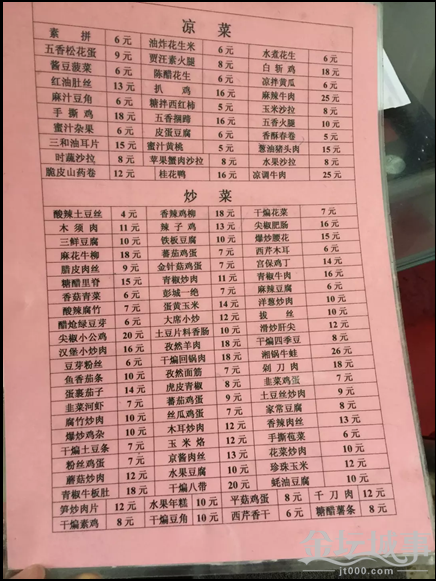 凉菜
素拼 6元 油炸花生米 6元 水煮花生 6元
五香松花蛋 9元 贾汪素火腿 8元 白斩鸡 18元
酱豆菠菜 6元 陈醋花生 6元 凉拌黄瓜 6元
红油肚丝 13元 扒鸡 16元 麻辣牛肉 25元
麻汁豆角 6元 糖拌西红柿 5元 玉米沙拉 8元
手撕鸡 18元 五香捆蹄 16元 五香火腿 10元
蜜汁杂果 6元 皮蛋豆腐 6元 香酥春卷 5元
三和油耳片 15元 蜜汁黄桃 5元 葱油猪头肉 15元
时蔬沙拉 8元 苹果蟹肉沙拉 8元 水果沙拉 8元
脆皮山药卷 12元 桂花鸭 16元 凉调牛肉 25元
炒菜
酸辣土豆丝 4元 香辣鸡柳 18元 干煸花菜 7元
木须肉 11元 辣子鸡 13元 尖椒肥肠 16元
三鲜豆腐 10元 铁板豆腐 10元 爆炒腰花 15元
麻花牛柳 18元 蕃茄鸡蛋 7元 西芹木耳 6元
腊皮肉丝 9元 金针菇鸡蛋 7元 宫保鸡丁 14元
糖醋里脊 15元 青椒炒肉 11元 青椒牛肉 16元
香菇青菜 6元 彭城一绝 7元 麻辣豆腐 6元
酸辣腐竹 7元 蛋黄玉米 14元 洋葱炒肉 10元
醋烩绿豆芽 6元 大席小炒 12元 拔丝 10元
尖椒小公鸡 20元 土豆片料香肠 10元 滑炒肝尖 12元
汉堡小炒肉 16元 孜然羊肉 18元 干煸四季豆 8元
豆芽粉丝 6元 干煸回锅肉 18元 湘锅牛蛙 26元
鱼香茄条 10元 孜然面筋 7元 剁刀肉 18元
蛋裹茄子 14元 虎皮青椒 8元 韭菜鸡蛋 7元
韭菜河虾 7元 蕃茄鸡蛋 9元 土豆丝炒肉 9元
腐竹炒肉 10元 丝瓜鸡蛋 7元 家常豆腐 8元
爆炒鸡杂 10元 木耳炒肉 12元 香辣肉丝 13元
干煸土豆条 7元 玉米烙 12元 手撕苞菜 6元
粉丝鸡蛋 7元 京酱肉丝 13元 花菜炒肉 10元
蘑菇炒肉 12元 水果豆腐 10元 珍珠玉米 12元
青椒牛板肚 18元 干煸八带 20元 蚝油豆腐 10元
笋炒肉片 12元 水果年糕 10元 平菇鸡蛋 8元 千刀肉 12元
干煸素鸡 8元 干煸豆角 10元 西芹香干 6元 糖醋薯条 8元
金坛城事
jt000.com